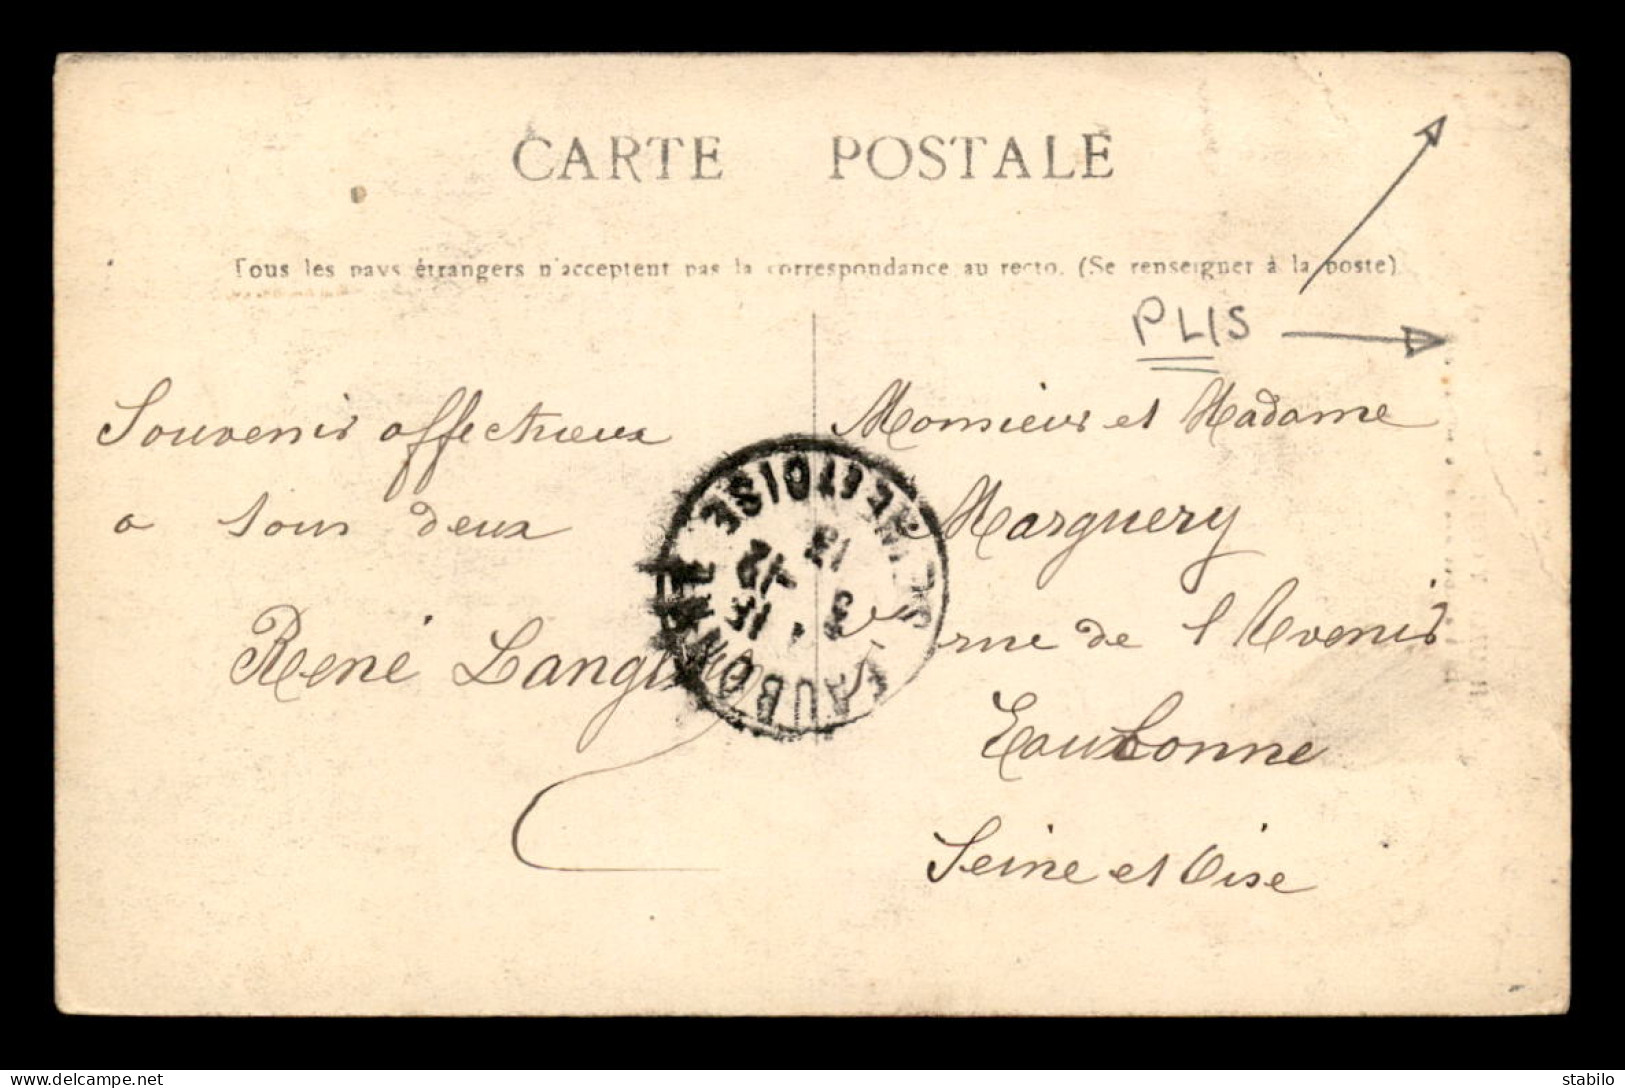 CARTE POSTALE
Tous les pays étrangers n'acceptent pas la correspondance au recto. (Se renseigner à la poste)
PLIS
Souvenir affectueux
a tous deux
René
Monsieur et Madame
Marguery
rue de l'Avenir
Eaubonne
Seine et Oise
EAUBONNE
SEINE ET OISE
15
3
12
delcampe.net
stabilo